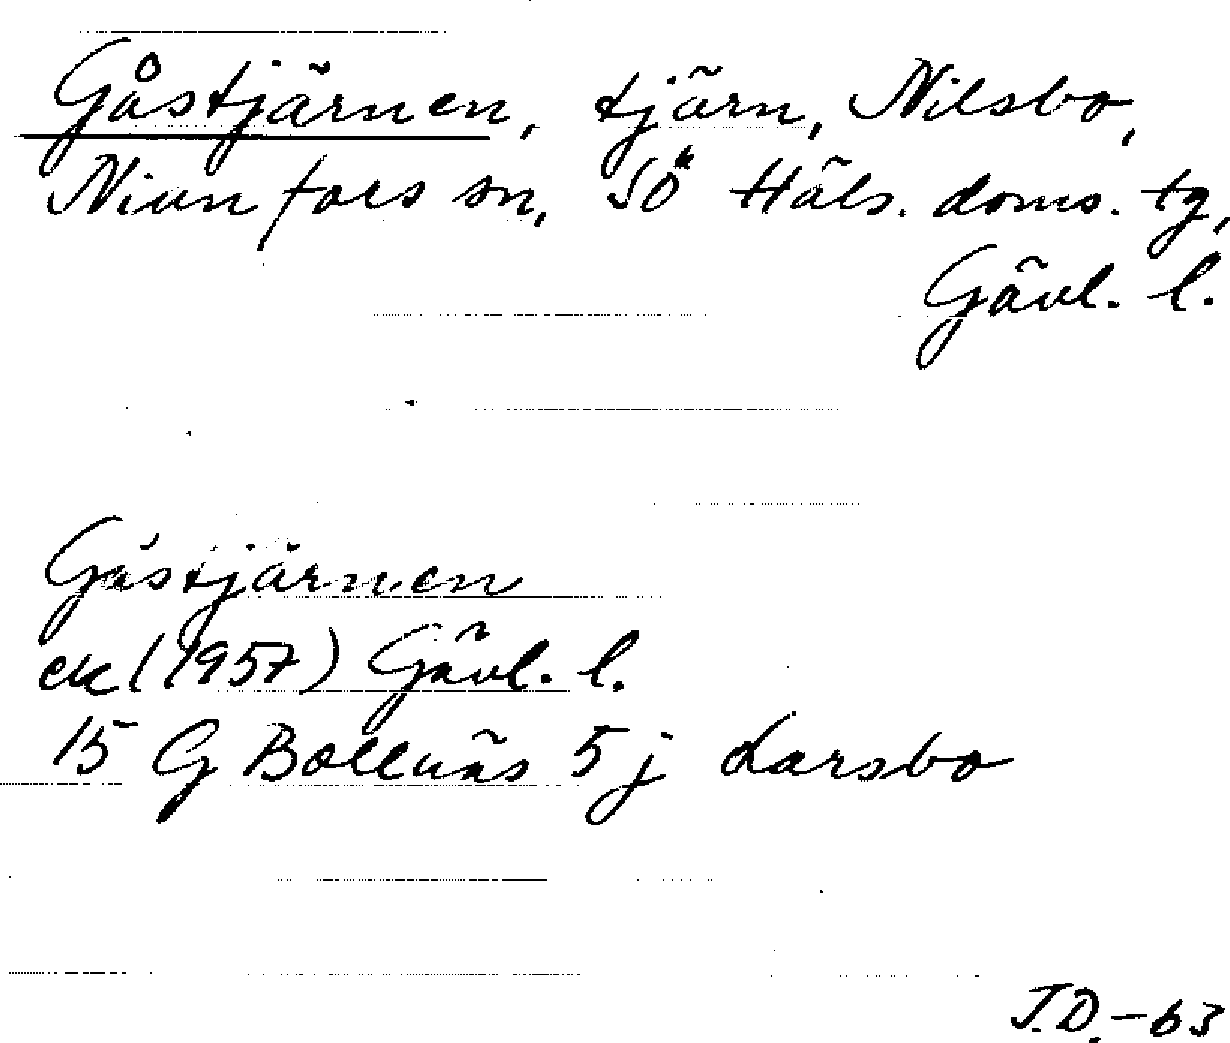 Gåstjärnen, tjärn, Nilsbo,
Nianfors sn, Sö Häls. doms. tg,
Gävl. l.
Gåstjärnen
ek (1957) Gävl. l.
15 G Bollnäs 5 j Larsbo
J.D.-63